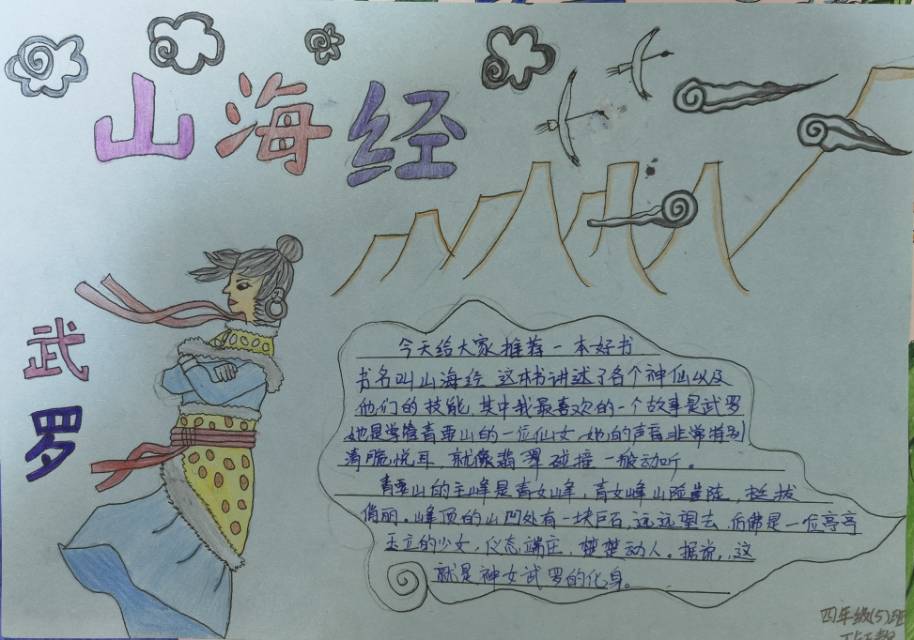 山海经
武罗
今天给大家推荐一本好书
书名叫山海经,这本书讲述了各个神仙以及
他们的技能,其中我最喜欢的一个故事是武罗
她是掌管青要山的一位仙女,她的声音非常特别
清脆悦耳,就像翡翠碰撞一般动听。
青要山的主峰是青女峰,青女峰山险崖陡,挺拔
俏丽。峰顶的山凹处有一块巨石,远远望去,仿佛是一位亭亭
玉立的少女,仪态端庄,楚楚动人。据说,这
就是神女武罗的化身。
四年级(5)班